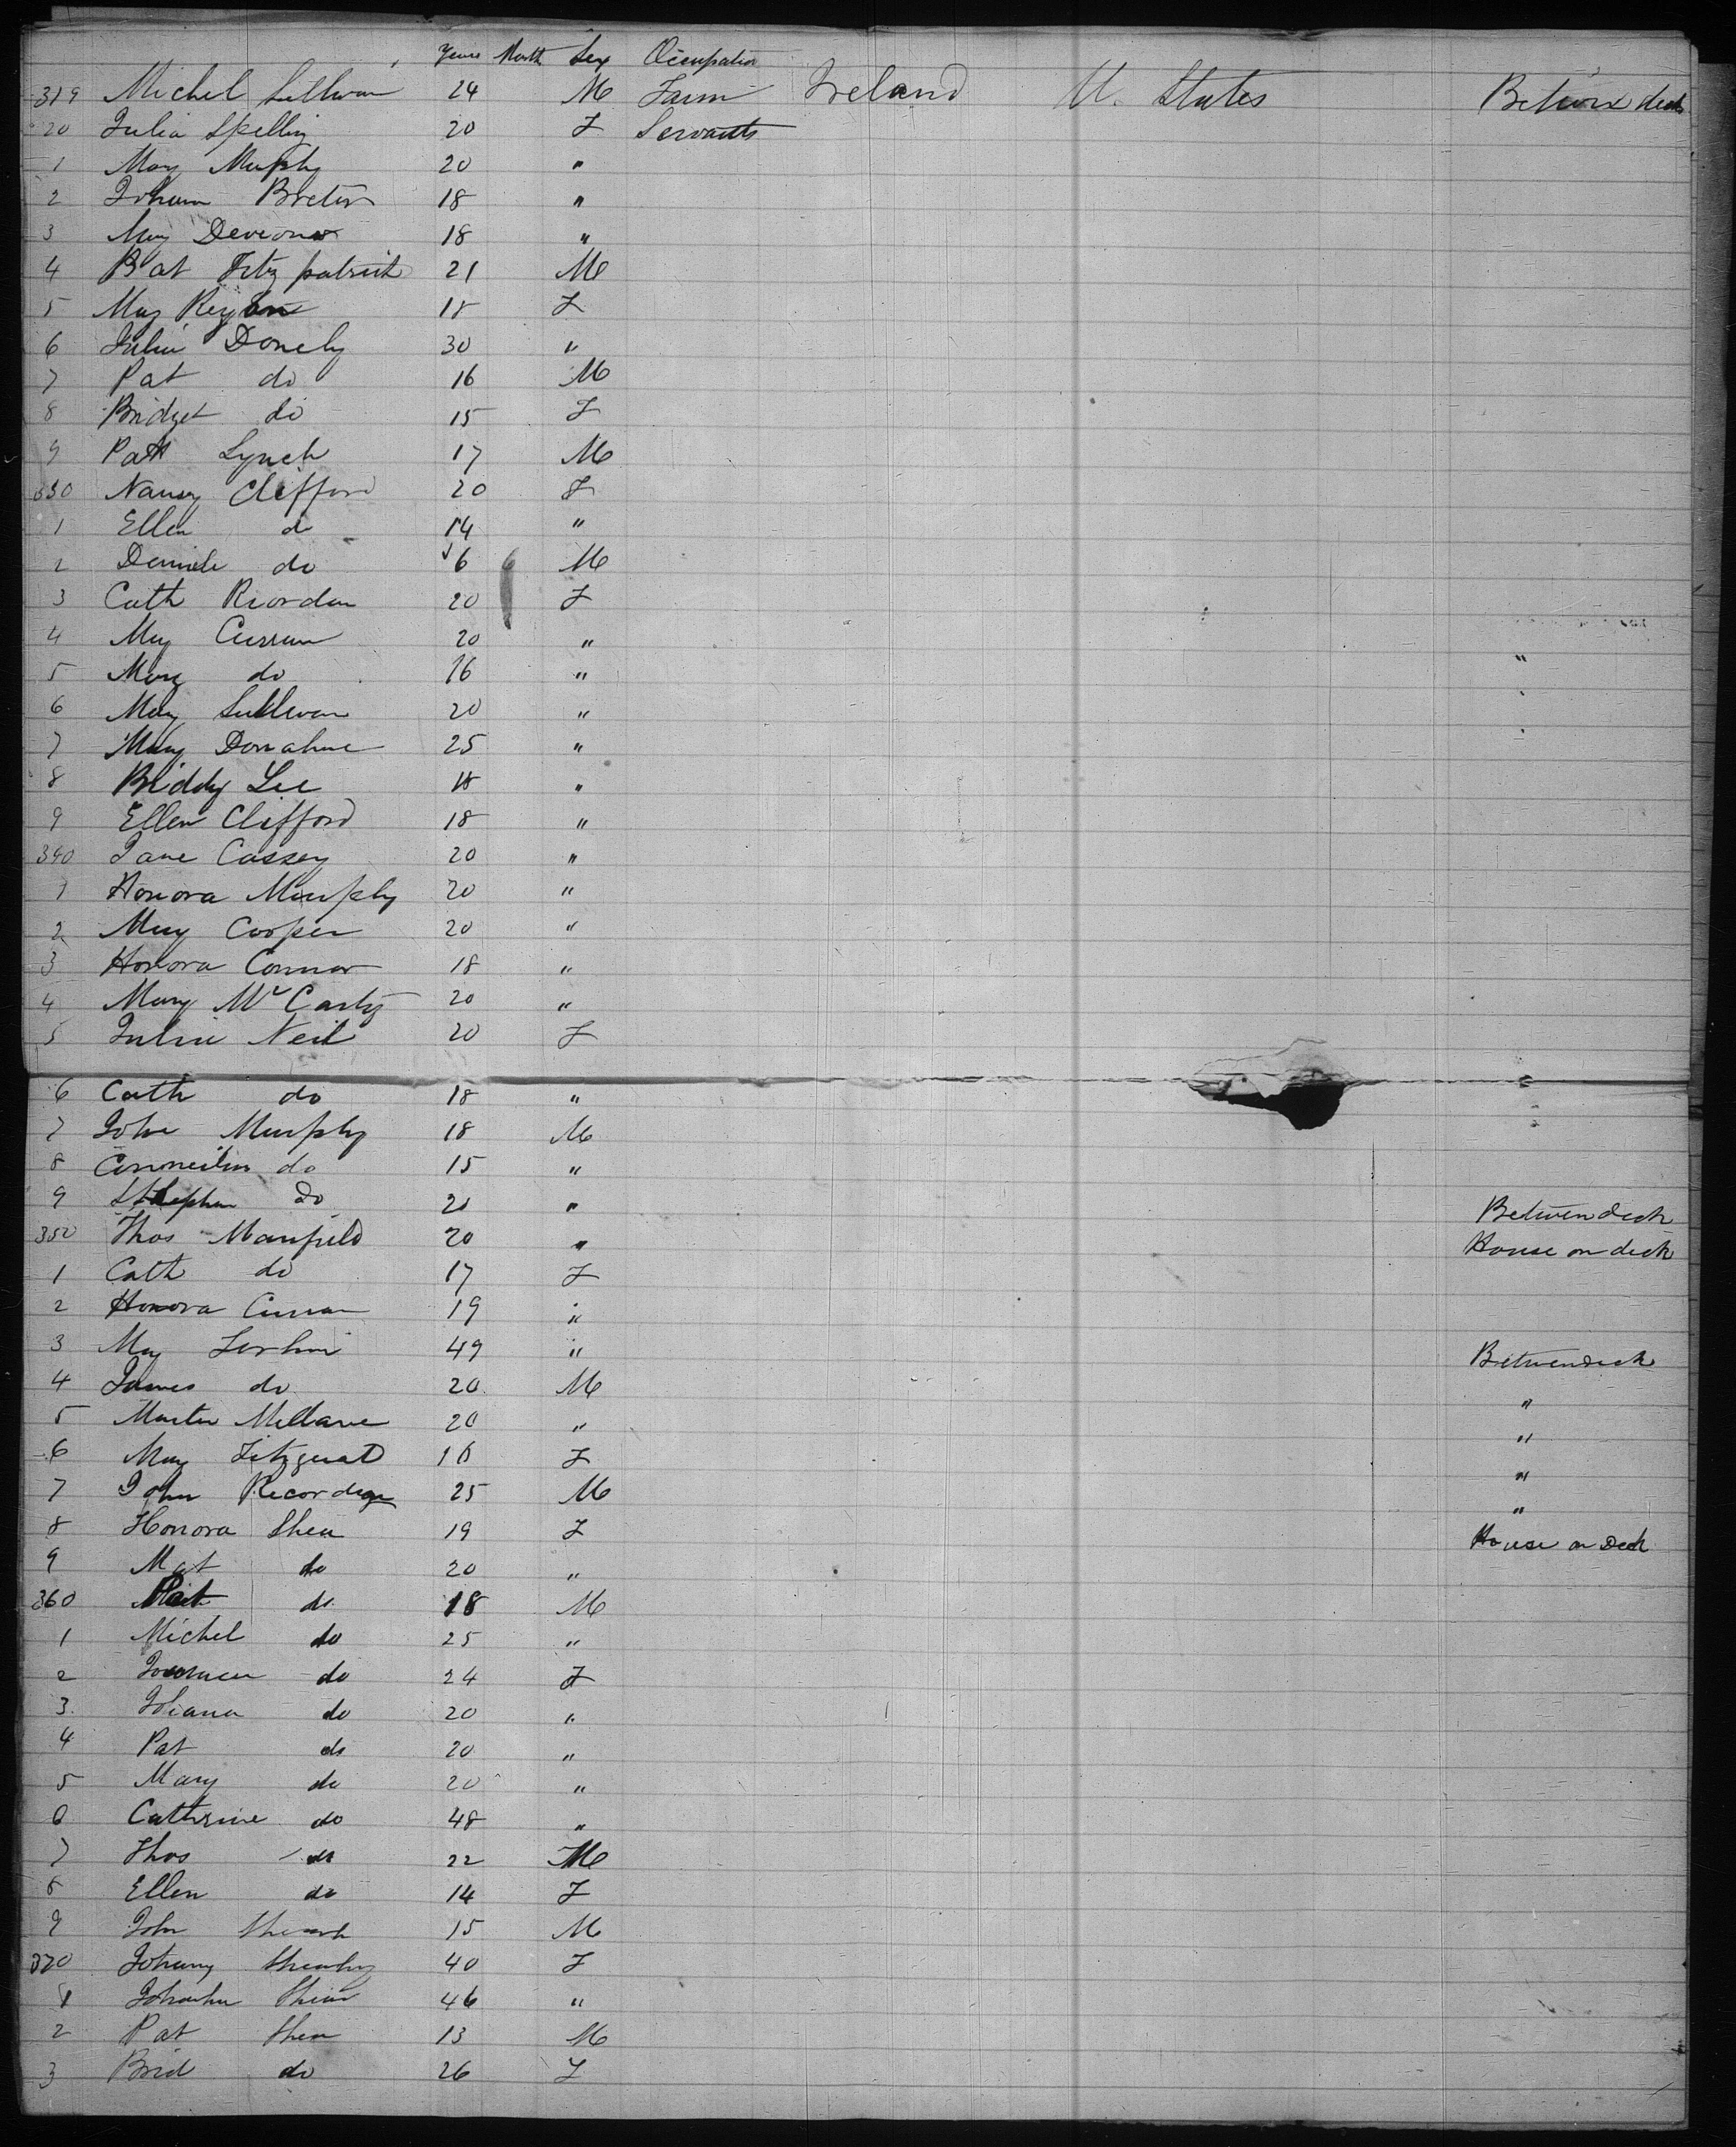 Years Month Sex Occupation
319 Michel Sullivan 24 M Farm Ireland U. States Betwix deck
20 Julia Spellin 20 F Servants
1 May Murphy 20 "
2 Johann 18 "
3 May 18 "
4 Bat Fitz patrick 21 M
5 May Regan 18 F
6 Julia Donely 30 "
7 Pat do 16 M
8 Bridget do 15 F
9 Patk Lynch 17 M
330 Nancy Clifford 20 F
1 Ellen do 14 "
2 do 6 6 M
3 Cath Riordan 20 F
4 May Curran 20 "
5 Mary do 16 " "
6 May Sullivan 20 "
7 Mary Donahue 25 "
8 Biddy Lee 18 "
9 Ellen Clifford 18 "
340 Jane Cassey 20 "
1 Honora Murphy 20 "
2 Mary Cooper 20 "
3 Honora Connor 18 "
4 Mary Mc Carty 20 "
5 Julia Neil 20 F
6 Cath do 18 "
7 John Murphy 18 M
8 do 15 "
9 Stephen Do "
Betwen deck
350 Thos Manfield 20 "
House on deck
1 Cath do 17 F
2 Honora Curran 19 "
3 May 49 " Betwendeck
4 James do 20 M "
5 Martin Millane 20 " "
6 May Fitzgerald F "
7 John 25 M "
8 Honora Shea 19 F House on Deck
9 do 20 "
360 Pat do 18 M
1 Michel do 25 "
2 do 24 F
3 do 20 "
4 Pat do 20 "
5 Mary do 20 "
6 Cathrine do 48 "
7 Thos do 22 M
8 Ellen do 14 F
9 John 15 M
370 40 F
1 46 "
2 Pat Shea 13 M
3 Brid do 26 F